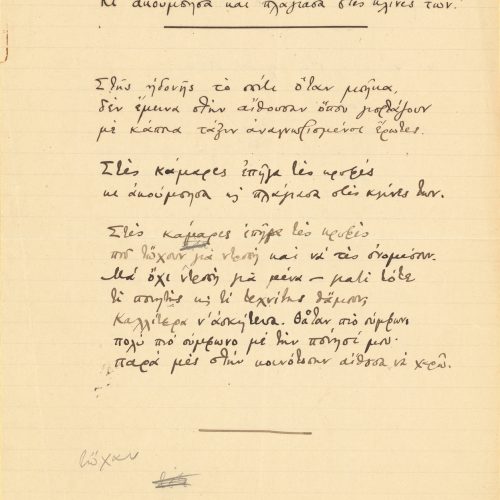 κι ακούμπησα και πλάγιασα στες κλίνες των.
Στης ηδονής το σπίτι όταν μπήκα,
δεν έμεινα στην αίθουσαν όπου γιορτάζουν
με κάποια τάξιν αναγνωρισμένοι έρωτες.
Στες κάμαρες επήγα τες κρυφές
κι ακούμπησα κ πλάγιασα στες κλίνες των.
Στες κάμαρες επήγα τες κρυφές
που τώχουν για ντροπή και να τες ονομάσουν.
Μα όχι ντροπή για μένα — γιατί τότε
τι ποιητής κ τι τεχνίτης θάμουν;
Καλλίτερα ν' ασκήτευα. Θάταν πιο σύμφωνο,
πολύ πιο σύμφωνο με την ποίησί μου·
παρά μες στην κοινότοπην αίθουσα να χαρώ.
τώχαν